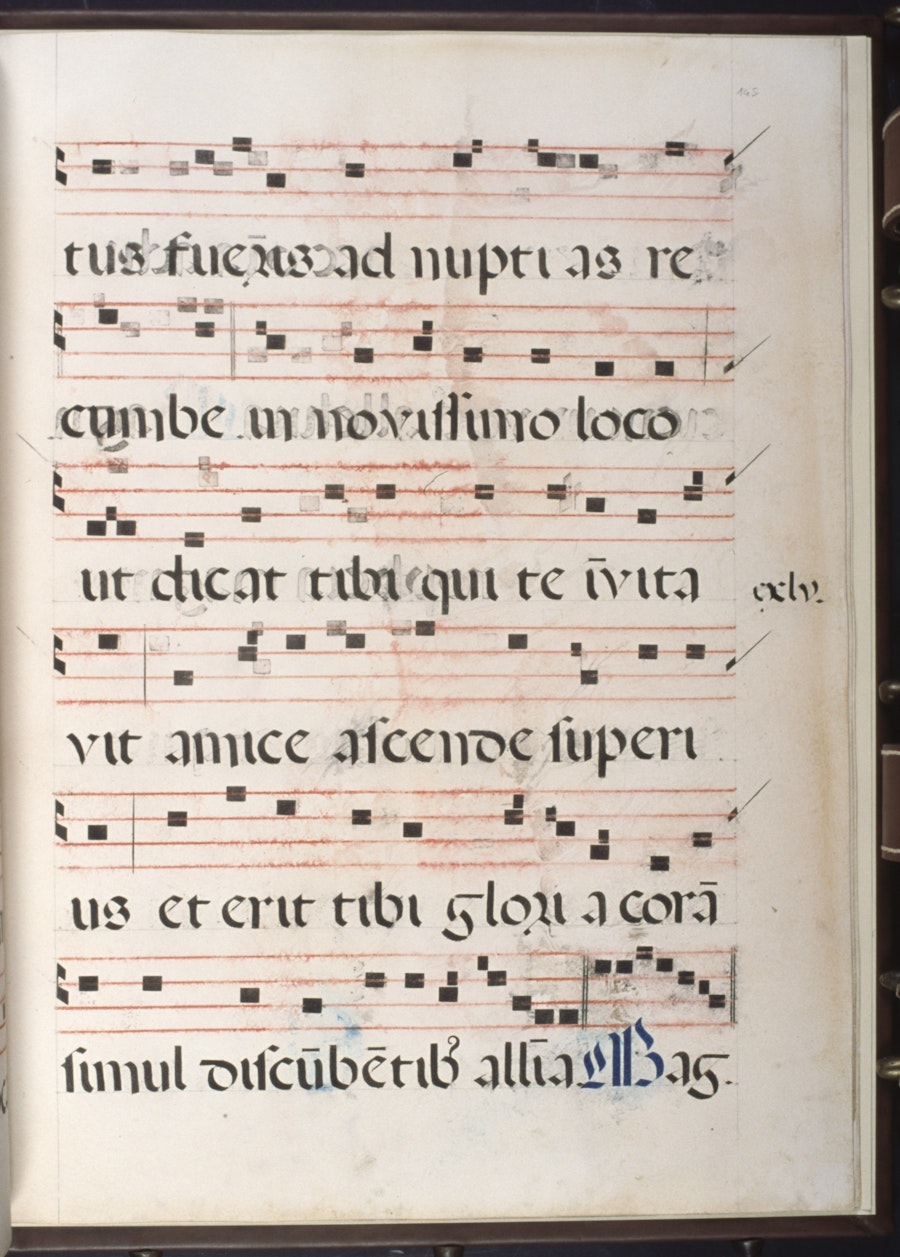 145
tus fueris ad nupti as re
cumbe in novissimo loco
ut dicat tibi qui te īvita
cxlv.
vit amice ascende superi
us et erit tibi glori a corā
simul discūbētib⁹ allīa Mag.